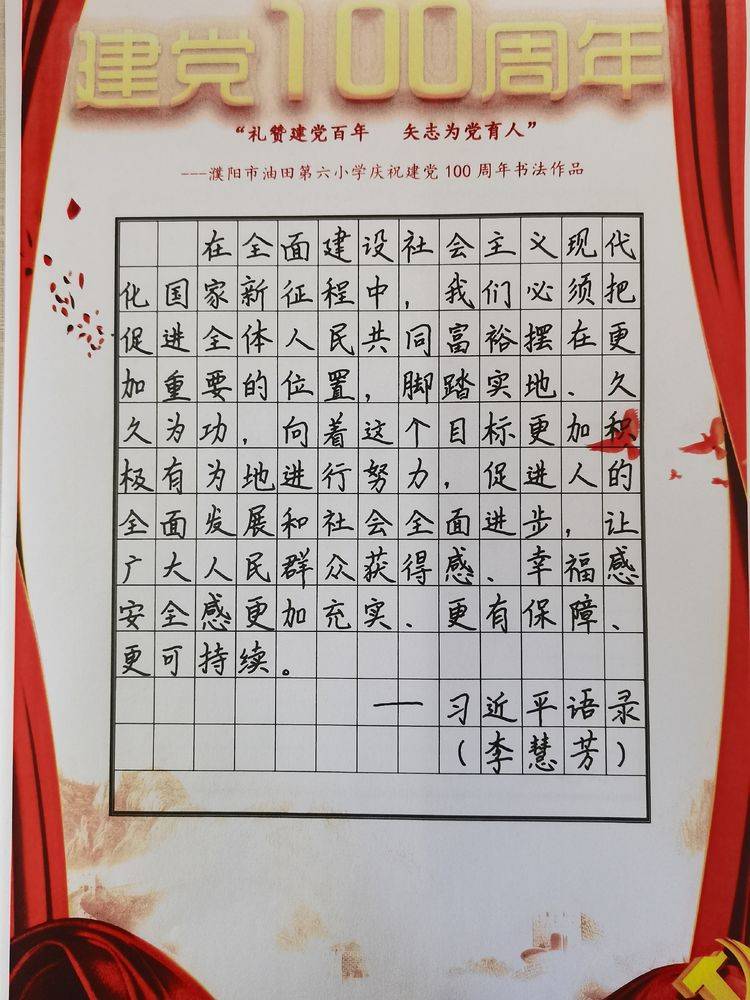 建党100周年
“礼赞建党百年 矢志为党育人”
---濮阳市油田第六小学庆祝建党 100 周年书法作品
在全面建设社会主义现代
化国家新征程中，我们必须把
促进全体人民共同富裕摆在更
加重要的位置，脚踏实地、久
久为功，向着这个目标更加积
极有为地进行努力，促进人的
全面发展和社会全面进步，让
广大人民群众获得感、幸福感
安全感更加充实、更有保障、
更可持续。
——习近平语录
（李慧芳）